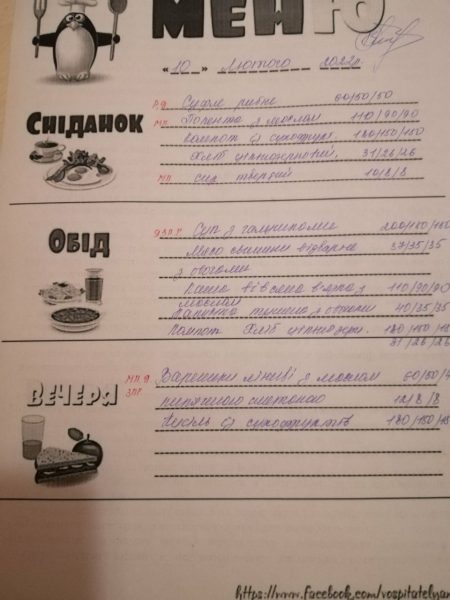 МЕНЮ
«10» Лютого 2022р.
СНІДАНОК
Суфле рибне 60/50/50
МП. Полента з маслом 110/90/90
Компот із сухофрукт. 180/150/150
Хліб цільнозерновий 31/26/26
МП сир твердий 10/8/8
ОБІД
Суп з галушками 200/150/150
М'ясо свинини відварне 37/35/35
з овочами
Каша вівсяна в'язка з 110/90/90
маслом
Капуста тушена з овочами 40/35/35
Компот Хліб цільнозерн. 180/150/15
31/26/26
ВЕЧЕРЯ
Вареники ліниві з маслом 60/50/
сметаною 12/8/8
Кисіль із сухофруктів 180/150/15
https://www.facebook.com/vospitatelyam